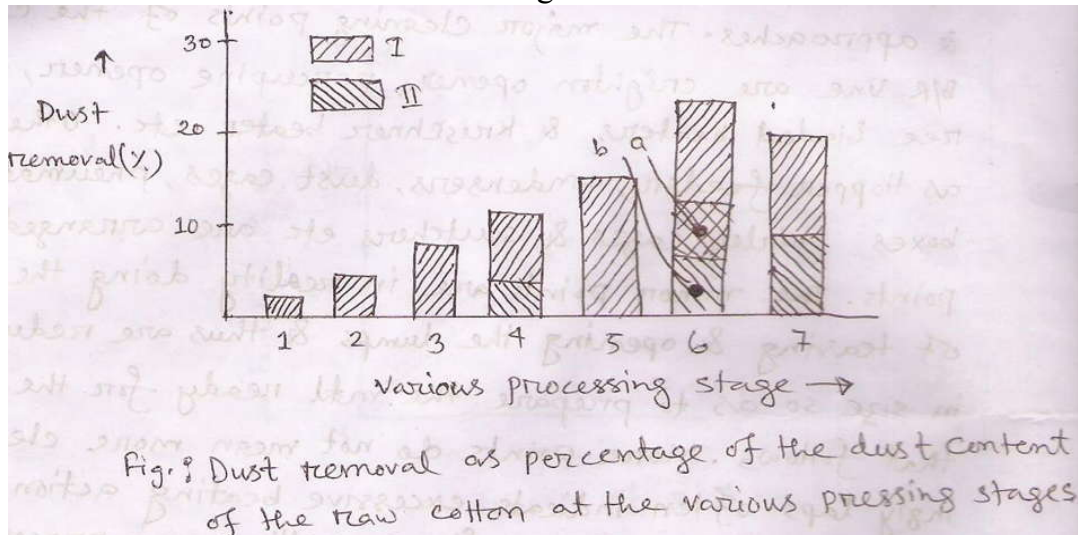 30
I
II
↑
Dust
removal(%)
20
10
b a
1 2 3 4 5 6 7
various processing stage →
Fig.: Dust removal as percentage of the dust content
of the raw cotton at the various pressing stages